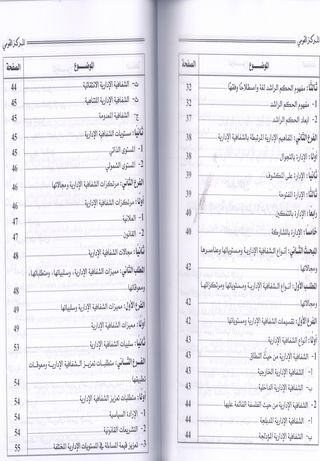 المركز القومي
الموضوع الصفحة
ثالثًا: مفهوم الحكم الراشد لغة واصطلاحًا وفقهًا 32
1- مفهوم الحكم الراشد 32
2- أبعاد الحكم الراشد 37
الفرع الثاني: المفاهيم الإدارية المرتبطة بالشفافية الإدارية 38
أولا: الإدارة بالتجوال 38
ثانيًا: الإدارة على المكشوف 39
ثالثًا: الإدارة المفتوحة 39
رابعا: الإدارة بالتمكين 40
خامسا: الإدارة بالمشاركة 40
المبحث الثاني: أنواع الشفافية الإدارية ومستوياتها وعناصرها
ومجالاتها 42
المطلب الأول: أنواع الشفافية الإدارية ومستوياتها ومرتكزاتها
ومجالاتها 42
الفرع الأول: تقسيمات الشفافية الإدارية ومستوياتها 42
أولا: أنواع الشفافية الإدارية 43
1- الشفافية الإدارية من حيث النطاق 43
أ- الشفافية الإدارية الخارجية 43
ب- الشفافية الإدارية الداخلية 43
2- الشفافية الإدارية من حيث الفلسفة القائمة عليها 44
أ- الشفافية الإدارية المبرمجة 44
ب- الشفافية الإدارية المؤدلجة 44
المركز القومي
الموضوع الصفحة
ت- الشفافية الإدارية الانتقائية 44
ث- الشفافية الإدارية المتناهية 45
ج- الشفافية المعدومة 45
ثانيا: مستويات الشفافية الإدارية 45
1- المستوى الذاتي 45
2- المستوى الشمولي 46
الفرع الثاني: مرتكزات الشفافية الإدارية ومجالاتها 46
أولا: مرتكزات الشفافية الإدارية 46
1- العلانية 47
2- القانون 47
ثانيا: مجالات الشفافية الإدارية 48
المطلب الثاني: مميزات الشفافية الإدارية، وسلبياتها، ومتطلباتها،
ومعوقاتها 48
الفرع الأول: مميزات الشفافية الإدارية وسلبياتها 49
أولا: مميزات الشفافية الإدارية 49
ثانيا: سلبيات الشفافية الإدارية 53
الفرع الثاني: متطلبات تعزيز الشفافية الإدارية ومعوقات
تطبيقها 54
أولا: متطلبات تعزيز الشفافية الإدارية 54
1- الإرادة السياسية 54
2- التشريعات القانونية 54
3- تعزيز قيمة المساءلة في المستويات الإدارية المختلفة 55